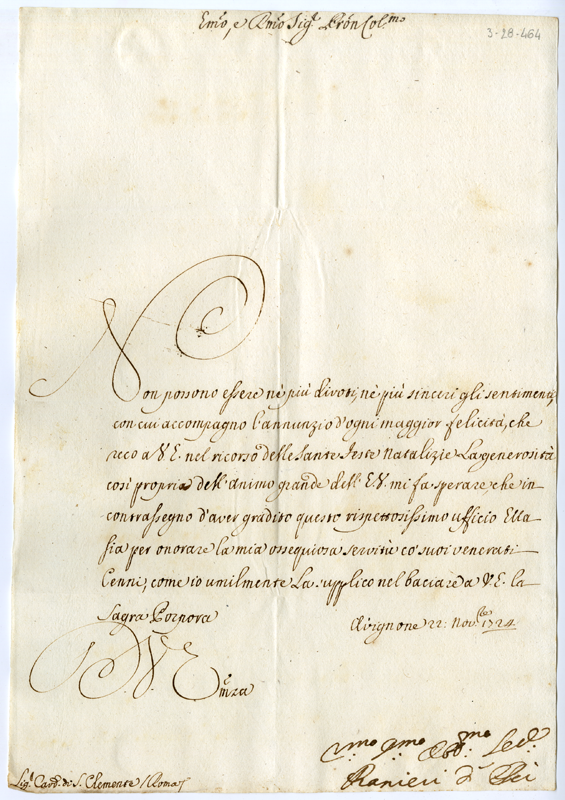 Emo, e Rmo Sigr Pron Colmo
3-28-464
Non possono essere nè più divoti, nè più sinceri gli sentimenti,
con cui accompagno l'annunzio d'ogni maggior felicità, che
reco a V.E. nel ricorso delle Sante Feste Natalizie. La generosità
così propria dell'animo grande dell'E.V. mi fa sperare, che in
contrassegno d'aver gradito questo rispettosissimo ufficio Ella
sia per onorare la mia ossequiosa servitù co' suoi venerati
Cenni, come io umilmente La supplico nel baciare a V.E. la
Sagra Porpora
Avignone 22: Novbre 1724
V. Emza
Umo Dmo Obbmo Serv.
Ranieri d'Elci
Sigr Card. di S. Clemente / Roma